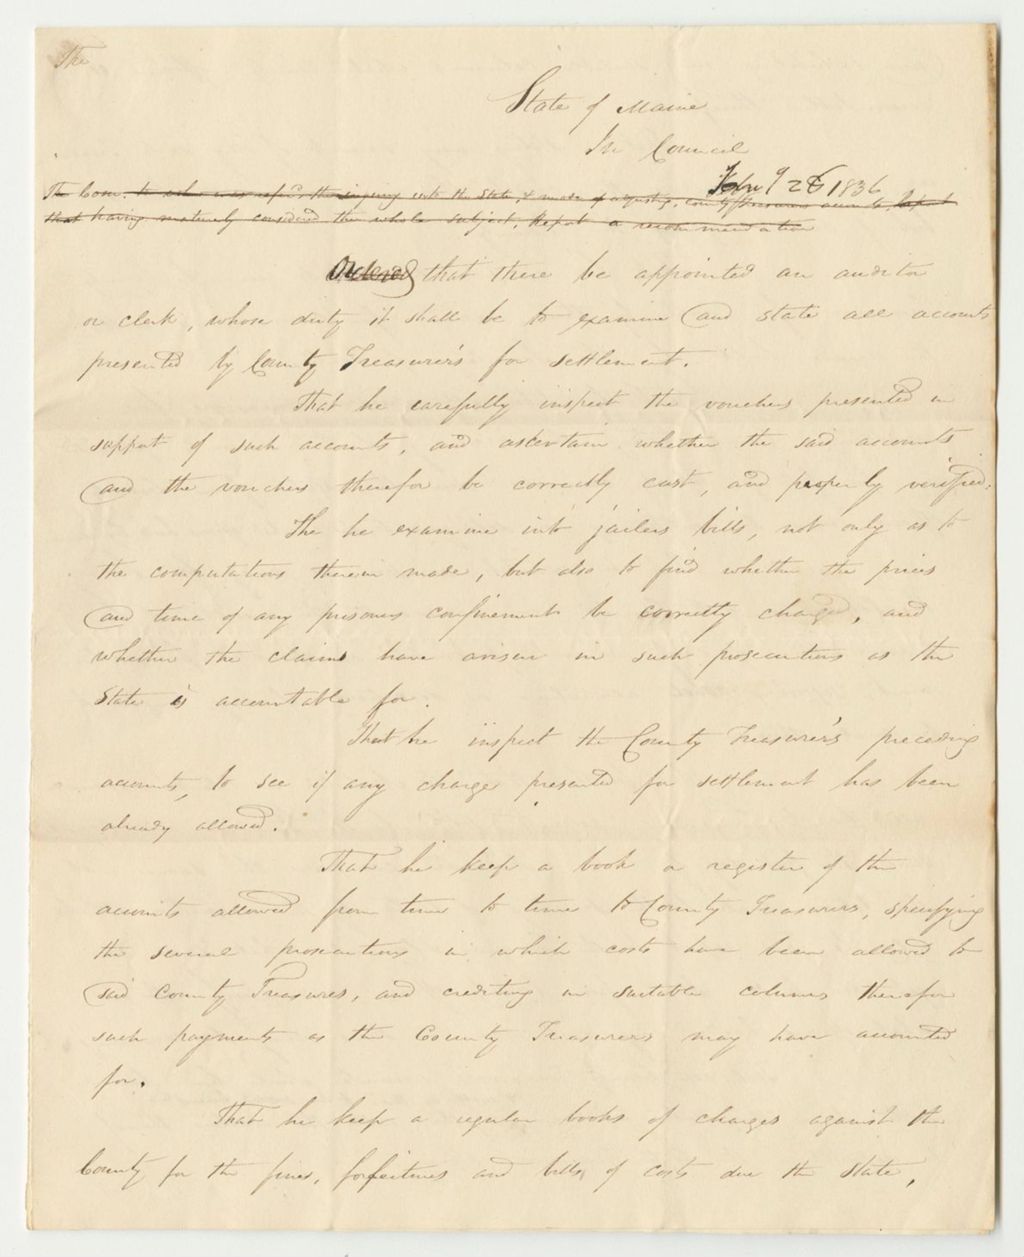 The
State of Maine
In Council
Feby 26 1836
The Com. to who was refd. the inquiry into the State & mode of adjusting County Treasurers accounts, Report
that having maturely considered the whole subject, Report a recommendation
Ordered that there be appointed an auditor
or clerk, whose duty it shall be to examine and state all accounts
presented by County Treasurers for settlement.
That he carefully inspect the vouchers presented in
support of such accounts, and ascertain whether the said accounts
and the vouchers therefor be correctly cast, and properly verified.
The he examine into jailers bills, not only as to
the computations therein made, but also to find whether the prices
and time of any prisoners confinement be correctly charged, and
whether the claims have arisen in such prosecutions as the
State is accountable for.
That he inspect the County Treasurer's preceding
accounts, to see if any charge presented for settlement has been
already allowed.
That he keep a book or register of the
accounts allowed from time to time to County Treasurers, specifying
the several prosecutions in which costs have been allowed to
said County Treasurers, and crediting in suitable columns therefor
such payments as the County Treasurers may have accounted
for.
That he keep a regular books of charges against the
County for the fines, forfeitures and bills of costs due the State,